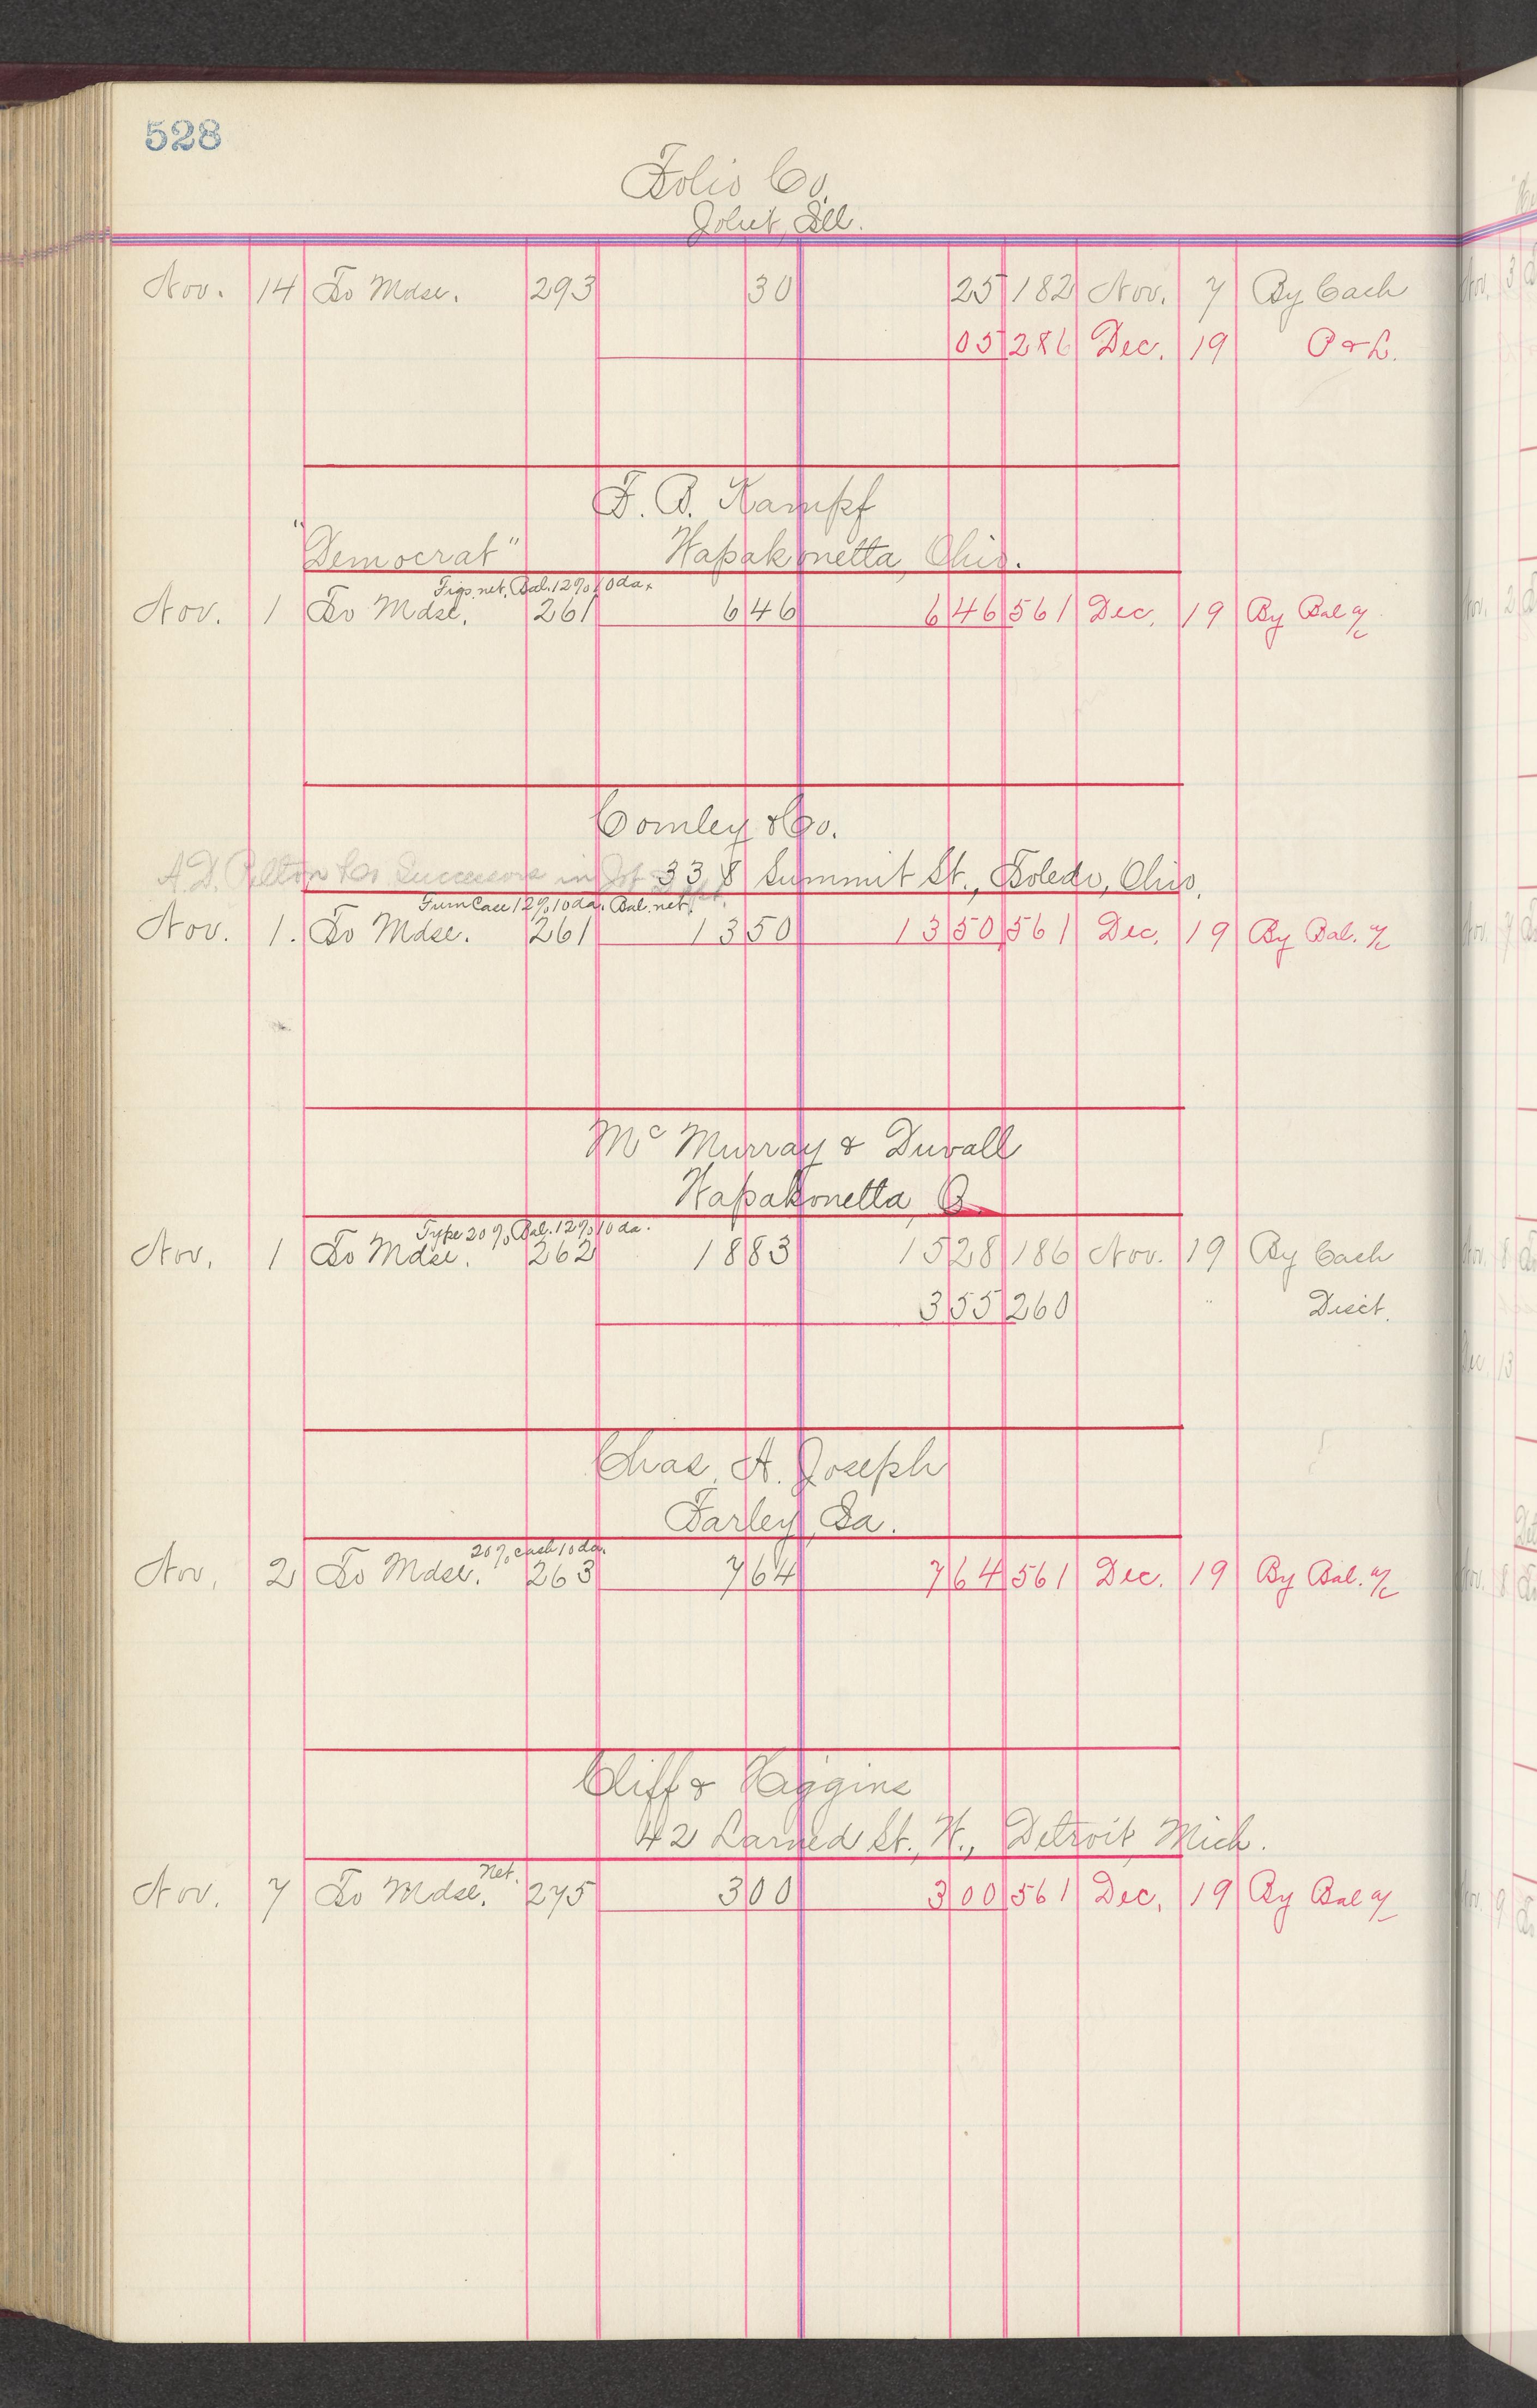 528
Folio Co.
Joliet, Ill.
Nov. 14 To Mdse. 293 30 25 182 Nov. 7 By Cash
05 286 Dec. 19 P & L.
F. B. Kampf
"Democrat" Wapakonetta, Ohio.
Figs. net, Bal. 12% 10 da.
Nov. 1 To Mdse. 261 6 46 6 46 561 Dec. 19 By Bal a/c
Comley & Co.
A. D. Pelton Co Successors in Jot Dept.
338 Summit St., Toledo, Ohio.
Furn Case 12% 10 da. Bal. net.
Nov. 1. To Mdse. 261 13 50 13 50 561 Dec. 19 By Bal. a/c
Mc Murray & Duvall
Wapakonetta, O.
Type 20%, Bal. 12% 10 da.
Nov. 1 To Mdse. 262 18 83 15 28 186 Nov. 19 By Cash
3 55 260 " Disct.
Chas. A. Joseph
Farley, Ia.
20% cash 10 da.
Nov. 2 To Mdse. 263 7 64 7 64 561 Dec. 19 By Bal. a/c
Cliff & Higgins
42 Larned St. W., Detroit, Mich.
Net.
Nov. 7 To Mdse. 275 3 00 3 00 561 Dec. 19 By Bal a/c